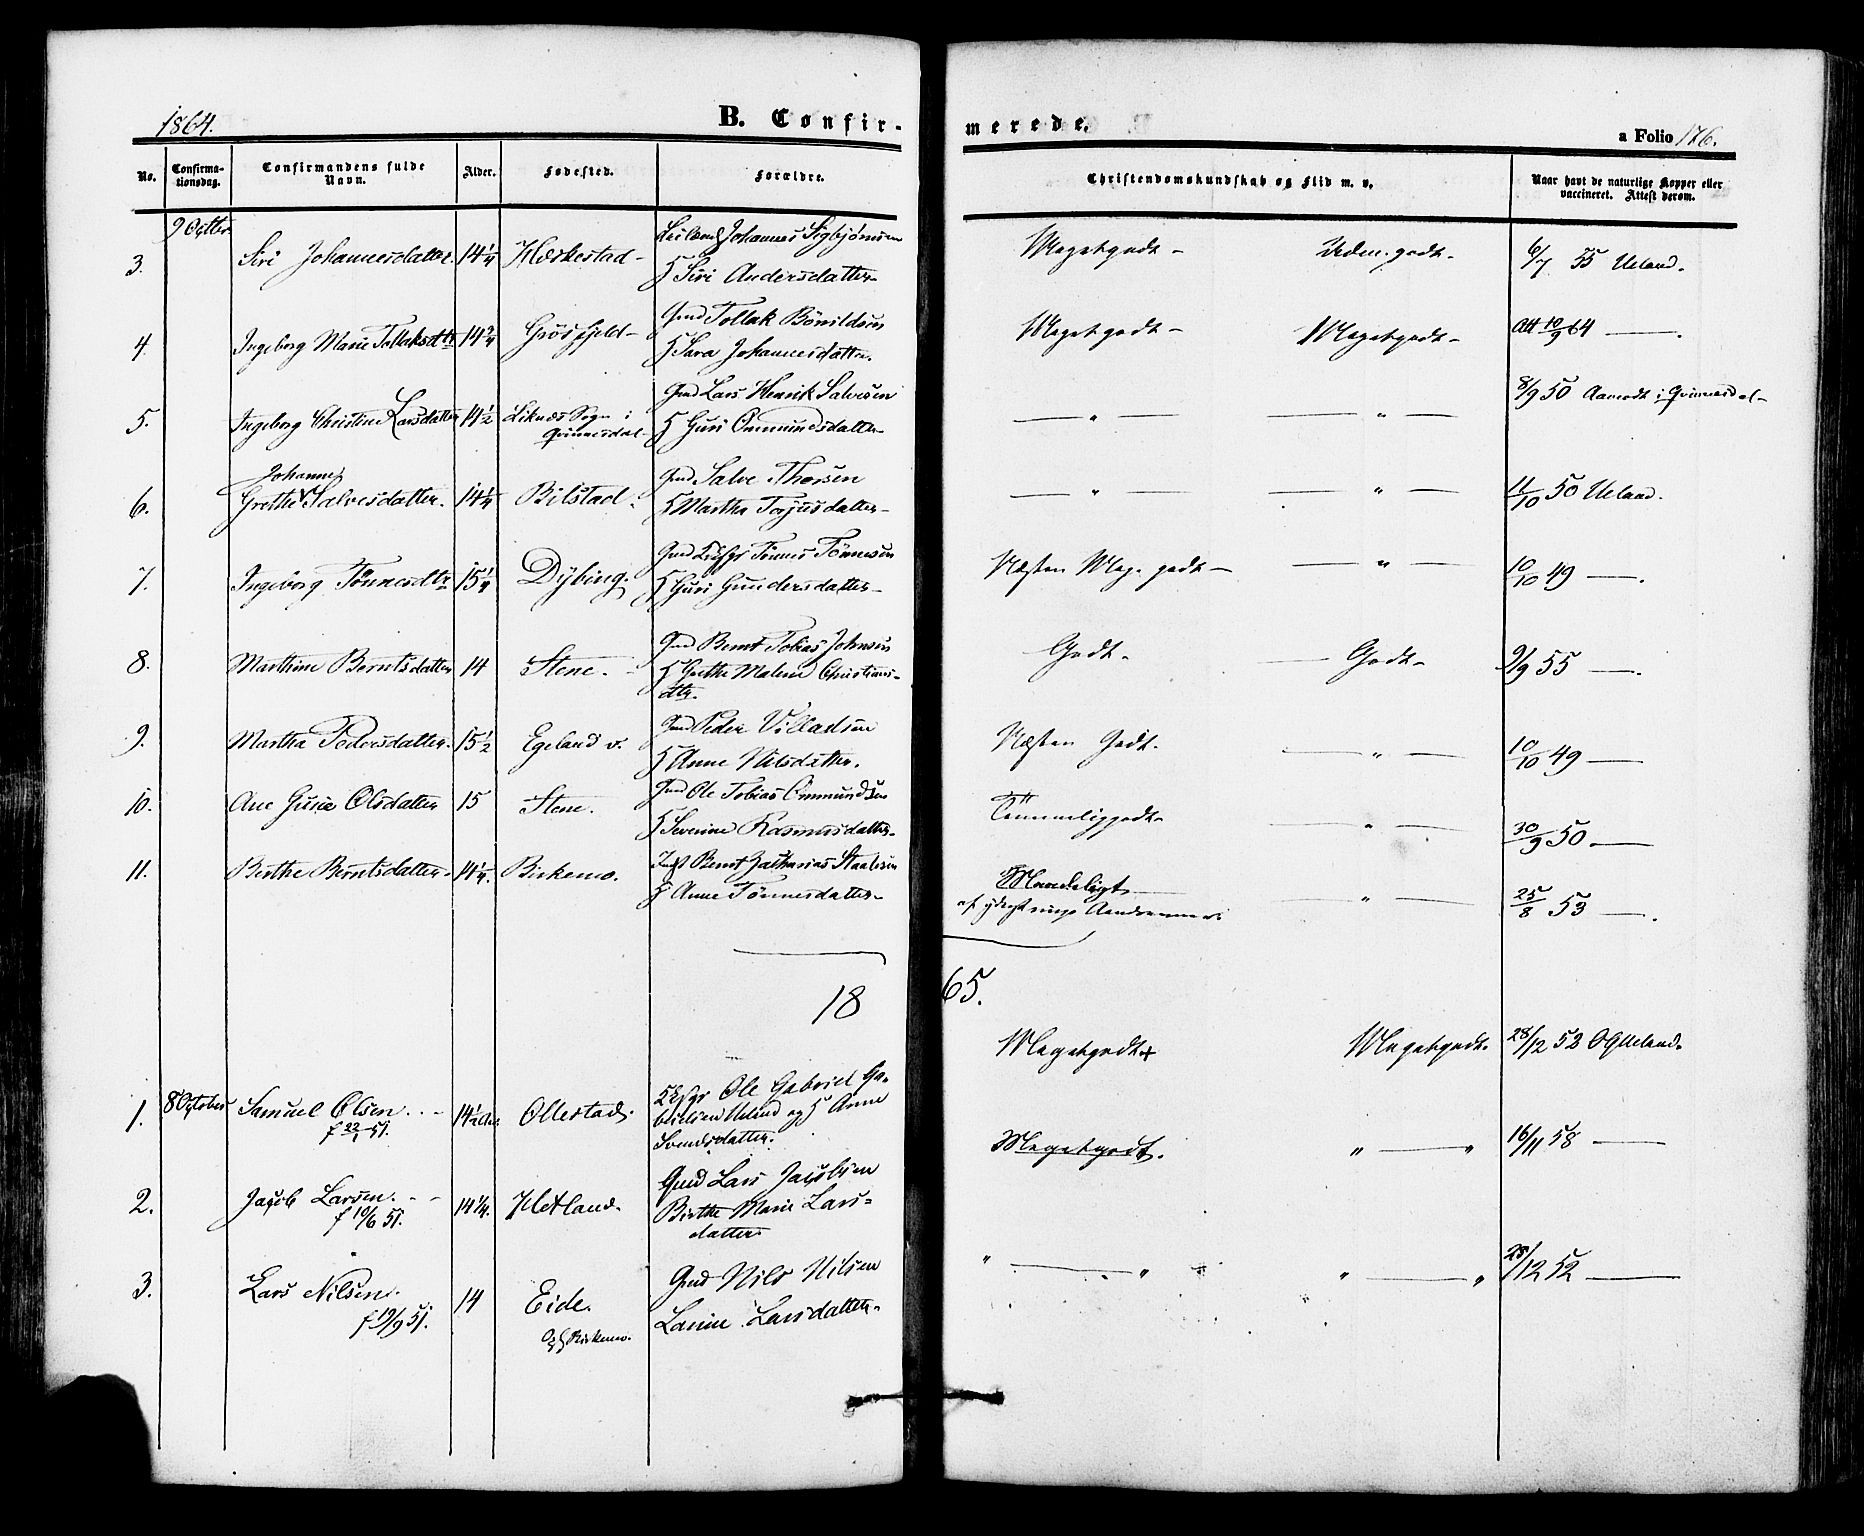 1864.
B. Confir-
merede.
a Folio 176.
No.
Confirma-
tionsdag.
Confirmandens fulde
Navn.
Alder.
Fødested.
Forældre.
Christendomskundskab og Flid m. v.
Naar havt de naturlige Kopper eller
vaccineret. Attest derom.
9 Octbr
3. Siri Johannesdatter. 14 1/4 Hærkestad- Johannes Sigbjørnsen
Siri Andersdatter- Megetgodt- Uden. godt- 6/7 55 Ueland.
4. Ingeborg Marie Tollaksdtr 14 3/4 Grøsfjeld- Gmd Tollak Bønildsen
Sara Johannesdatter. Megetgodt- Megetgodt- Att 10/9 64 —.
5. Ingeborg Christine Larsdatter 14 1/2 Liknæs Sogn i
Qvinnesdal- Gmd Lars Henrik Salvesen
Guri Ommundsdatter- — " — — " — 8/9 50 Aamodt i Qvinnesdal-
Johanne
6. Grethe Salvesdatter. 14 1/4 Bilstad. Gmd Salve Thorsen
Martha Torjusdatter- — " — — " — 11/10 50 Ueland.
7. Ingeborg Tønnesdtr 15 1/4 Dybing. Gmd Tønnes Tønnesen
Guri Gundersdatter- Næsten Meg. godt- — " — 10/10 49 —.
8. Marthine Berntsdatter 14 Stene. Gmd Bernt Tobias Johnsen
Grethe Malene Christians-
dtr. Godt- — Godt- 9/9 55 —.
9. Martha Pedersdatter. 15 1/2 Egeland v. Gmd Peder Villadsen
Anne Nilsdatter. Næsten Godt. — " — 10/10 49 —
10. Ane Gurie Olsdatter 15 Stene. Gmd Ole Tobias Ommundsen
Severine Rasmusdatter- Temmeliggodt- — " — 30/9 50. —
11. Berthe Berntsdatter. 14 1/4. Birkemo. Bernt Zacharias Staalesen
Anne Tønnesdatter- Maadeligt
af ringe — " — 25/8 53 —.
1865.
1. 8 October Samuel Olsen.
f 22/1 51. 14 1/2 Ollestad. Ole Gabriel Ga-
brielsen Ueland og Anne
Svendsdatter. Megetgodt+ Megetgodt. 28/12 52 Ueland.
2. Jacob Larsen.
f 10/6 51. 14 1/4. Hetland. Gmd Lars Jacobsen
Birthe Marie Lars-
datter Megetgodt. " — " 16/11 58 —
3. Lars Nilsen.
f 19/9 51. 14 Eide.
Birkemo. Gmd Nils Nilsen
Larsdatter. " — " " — " 28/12 52 —